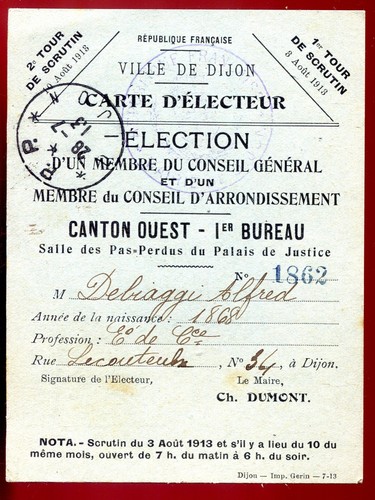 RÉPUBLIQUE FRANÇAISE
2e TOUR
DE SCRUTIN
Août 1913
1er TOUR
DE SCRUTIN
3 Août 1913
VILLE DE DIJON
CARTE D'ÉLECTEUR
ÉLECTION
D'UN MEMBRE DU CONSEIL GÉNÉRAL
ET D'UN
MEMBRE du CONSEIL D'ARRONDISSEMENT
CANTON OUEST - 1ER BUREAU
Salle des Pas-Perdus du Palais de Justice
No 1862
M Debraggi Alfred
Année de la naissance : 1868
Profession : Eé de Cce
Rue Lecouteulx, No 34, à Dijon.
Signature de l'Electeur, Le Maire,
Ch. DUMONT.
NOTA. - Scrutin du 3 Août 1913 et s'il y a lieu du 10 du
même mois, ouvert de 7 h. du matin à 6 h. du soir.
Dijon — Imp. Gerin — 7-13